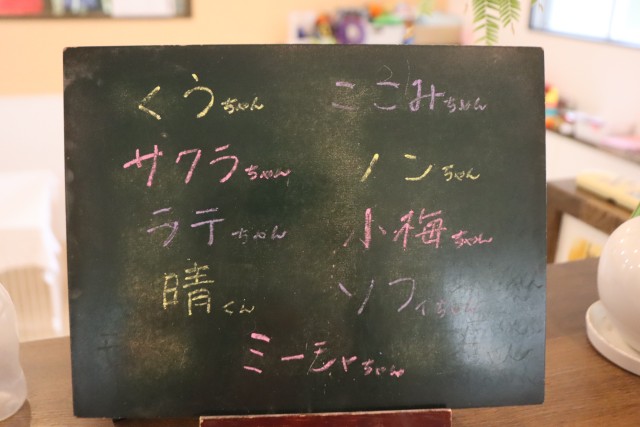 くうちゃん ここみちゃん
サクラちゃん ノンちゃん
ラテちゃん 小梅ちゃん
晴くん ソフィちゃん
ミーシャちゃん